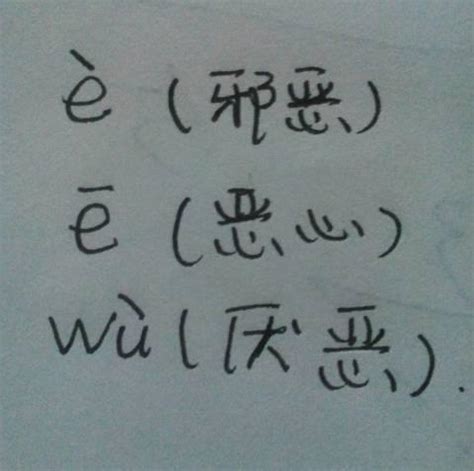 è (邪恶)
ē (恶心)
wù (厌恶).